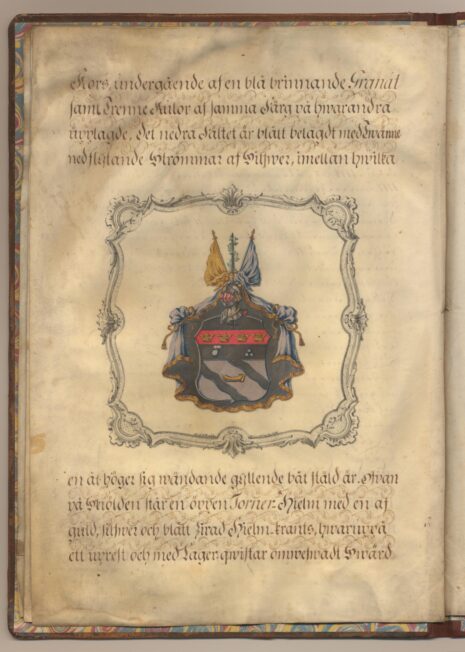 Kors, undergående af en blå brinnande Granat
samt Trenne Kulor af samma Färg på hwarandra
upplagde. Det nedra Fältet är blått belagdt med Twänne
nedflytande Strömmar af Silfwer, imellan hwilka
en åt höger sig wändande gyllende båt stäld är. Ofwan
på Skölden står en öppen Torner-Hielm med en af
guld, silfwer och blått sirad Hielm-krants, hwaruppå
ett uprest och med Lager-qwistar omwefwadt Swärd